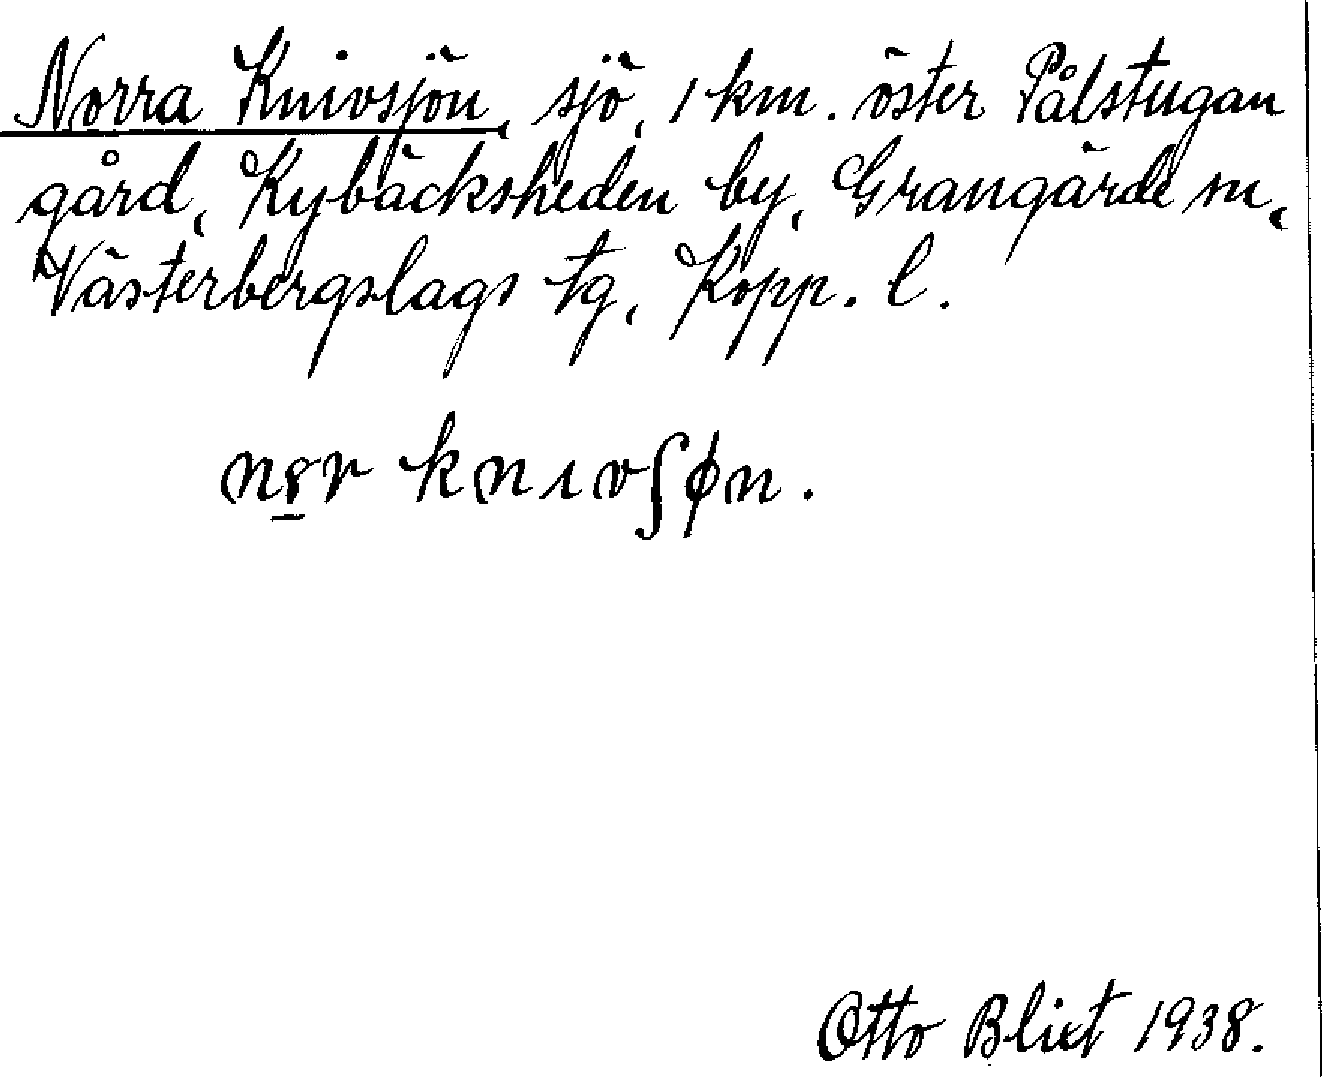 Norra Knivsjön, sjö, 1 km. öster Pålstugan
gård, Kybäcksheden by, Grangärde sn,
Västerbergslags tg, Kopp. l.
nɞ̱r knıvʃøn.
Otto Blixt 1938.